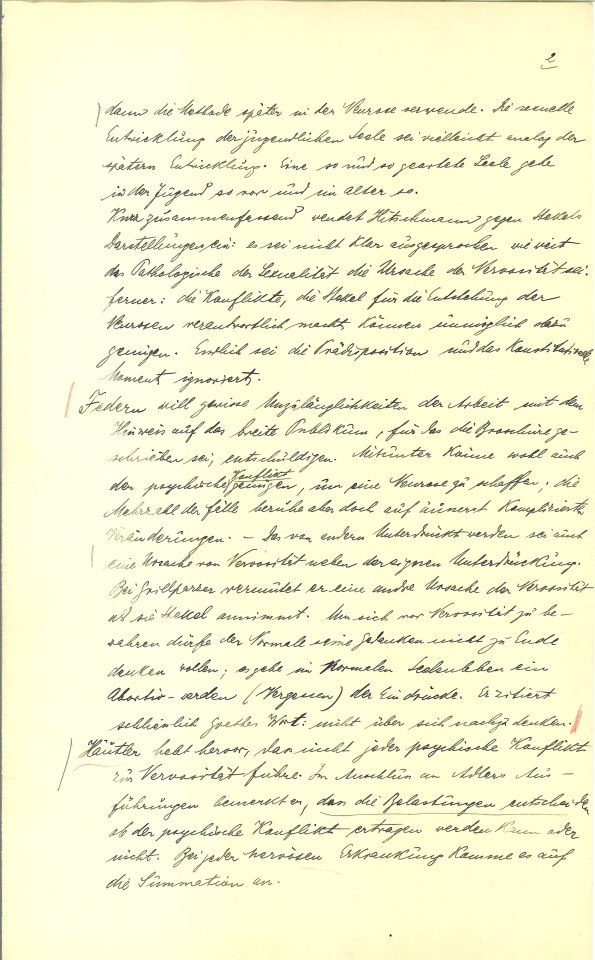 2
dann die Methode später in der Neurose verwende. Die sexuelle
Entwicklung der jugendlichen Seele sei vielleicht analog der
spätern Entwicklung. Eine so und so geartete Seele gehe
in der Jugend so vor und im Alter so.
Kurz zusammenfassend wendet Hitschmann gegen Stekels
Darstellungen ein: es sei nicht klar ausgesprochen wie weit
das Pathologische der Sexualität die Ursache der Nervosität sei.
ferner: die Konflikte, die Stekel für die Entstehung der
Neurosen verantwortlich macht, können unmöglich dazu
genügen. Endlich sei die Prädisposition und das Konstitutionelle
Moment ignoriert.
Federn will gewisse Unzulänglichkeiten der Arbeit mit dem
Hinweis auf das breite Publikum, für das die Broschüre ge-
schrieben sei, entschuldigen. Mitunter könne wohl auch
der psychische Konflikt genügen, um eine Neurose zu schaffen, die
Mehrzahl der Fälle beruhe aber doch auf äusserst komplizierten
Veränderungen. – Das von andern Unterdrückt werden sei auch
eine Ursache von Nervosität neben der eigenen Unterdrückung.
Bei Grillparzer vermutet er eine andre Ursache der Nervosität
als sie Stekel annimmt. Um sich vor Nervosität zu be-
wahren dürfe der Normale seine Gedanken nicht zu Ende
denken wollen; es gebe im normalen Seelenleben ein
Abortiv-werden (Vergessen) der Eindrücke. Er zitiert
schliesslich Goethes Wort: nicht über sich nachzudenken.
Häutler hebt hervor, dass nicht jeder psychische Konflikt
zur Nervosität führe. Im Anschluss an Adlers Aus-
führungen bemerkt er, dass die Belastungen entscheiden
ob der psychische Konflikt ertragen werden kann oder
nicht. Bei jeder nervösen Erkrankung komme es auf
die Summation an.